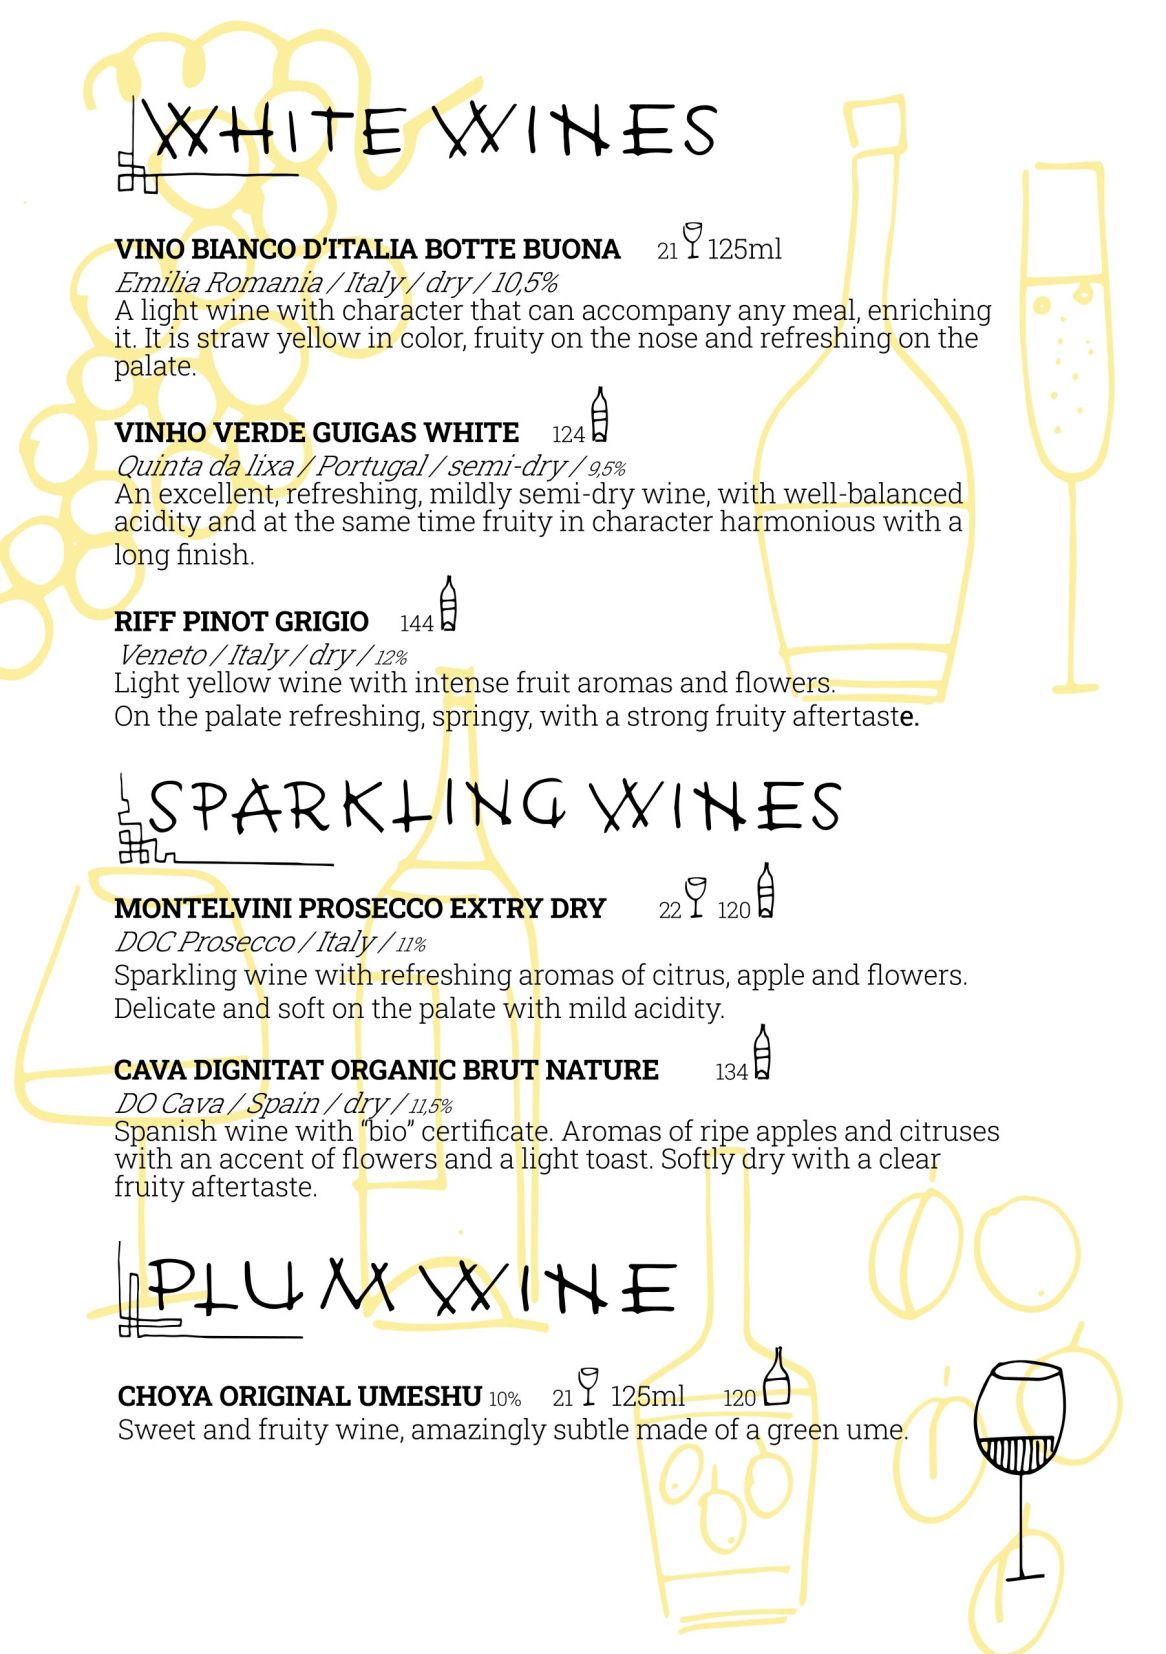 WHITE WINES
VINO BIANCO D'ITALIA BOTTE BUONA 21 125ml
Emilia Romania / Italy / dry / 10,5%
A light wine with character that can accompany any meal, enriching
it. It is straw yellow in color, fruity on the nose and refreshing on the
palate.
VINHO VERDE GUIGAS WHITE 124
Quinta da lixa / Portugal / semi-dry / 9,5%
An excellent, refreshing, mildly semi-dry wine, with well-balanced
acidity and at the same time fruity in character harmonious with a
long finish.
RIFF PINOT GRIGIO 144
Veneto / Italy / dry / 12%
Light yellow wine with intense fruit aromas and flowers.
On the palate refreshing, springy, with a strong fruity aftertaste.
SPARKLING WINES
MONTELVINI PROSECCO EXTRY DRY 22 120
DOC Prosecco / Italy / 11%
Sparkling wine with refreshing aromas of citrus, apple and flowers.
Delicate and soft on the palate with mild acidity.
CAVA DIGNITAT ORGANIC BRUT NATURE 134
DO Cava / Spain / dry / 11,5%
Spanish wine with “bio” certificate. Aromas of ripe apples and citruses
with an accent of flowers and a light toast. Softly dry with a clear
fruity aftertaste.
PLUM WINE
CHOYA ORIGINAL UMESHU 10% 21 125ml 120
Sweet and fruity wine, amazingly subtle made of a green ume.